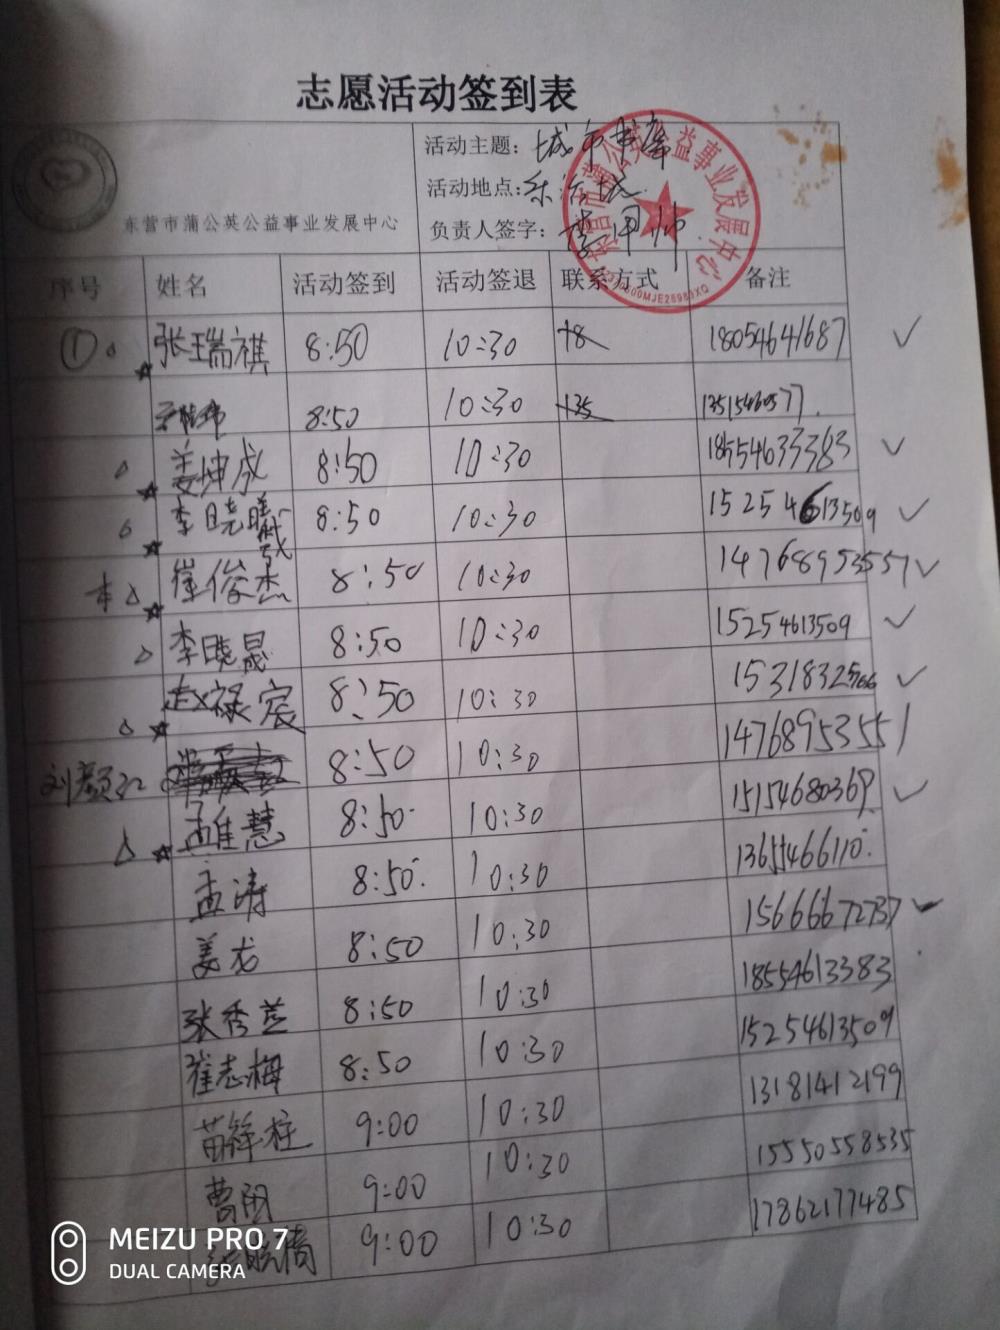 志愿活动签到表
东营市蒲公英公益事业发展中心
活动主题：城市书房
活动地点：乐活城
负责人签字：李甲帅
东营市蒲公英公益事业发展中心
序号 姓名 活动签到 活动签退 联系方式 备注
① 张瑞祺 8:50 10:30 18 18054641687
8:50 10:30 135
姜坤成 8:50 10:30 18554633383
李晓曦 8:50 10:30 15254613509
本 崔俊杰 8:50 10:30 14768953557
李晓晟 8:50 10:30 15254613509
赵禄宸 8:50 10:30
刘颜红 8:50 10:30 1476895355
孟维慧 8:50 10:30 15154680369
孟涛 8:50 10:30 13655466110
姜龙 8:50 10:30 15666672737
张秀芝 8:50 10:30 18554613383
崔志梅 8:50 10:30 15254613509
苗锋柱 9:00 10:30 13181412199
曹刚 9:00 10:30 15550558535
9:00 10:30 17862177485
MEIZU PRO 7
DUAL CAMERA